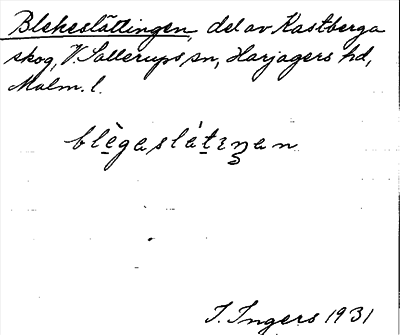 Blekeslättingen, del av Kastberga
skog, V. Sallerups sn, Harjagers hd,
Malm. l.
blègaslátiŋan
I. Ingers 1931